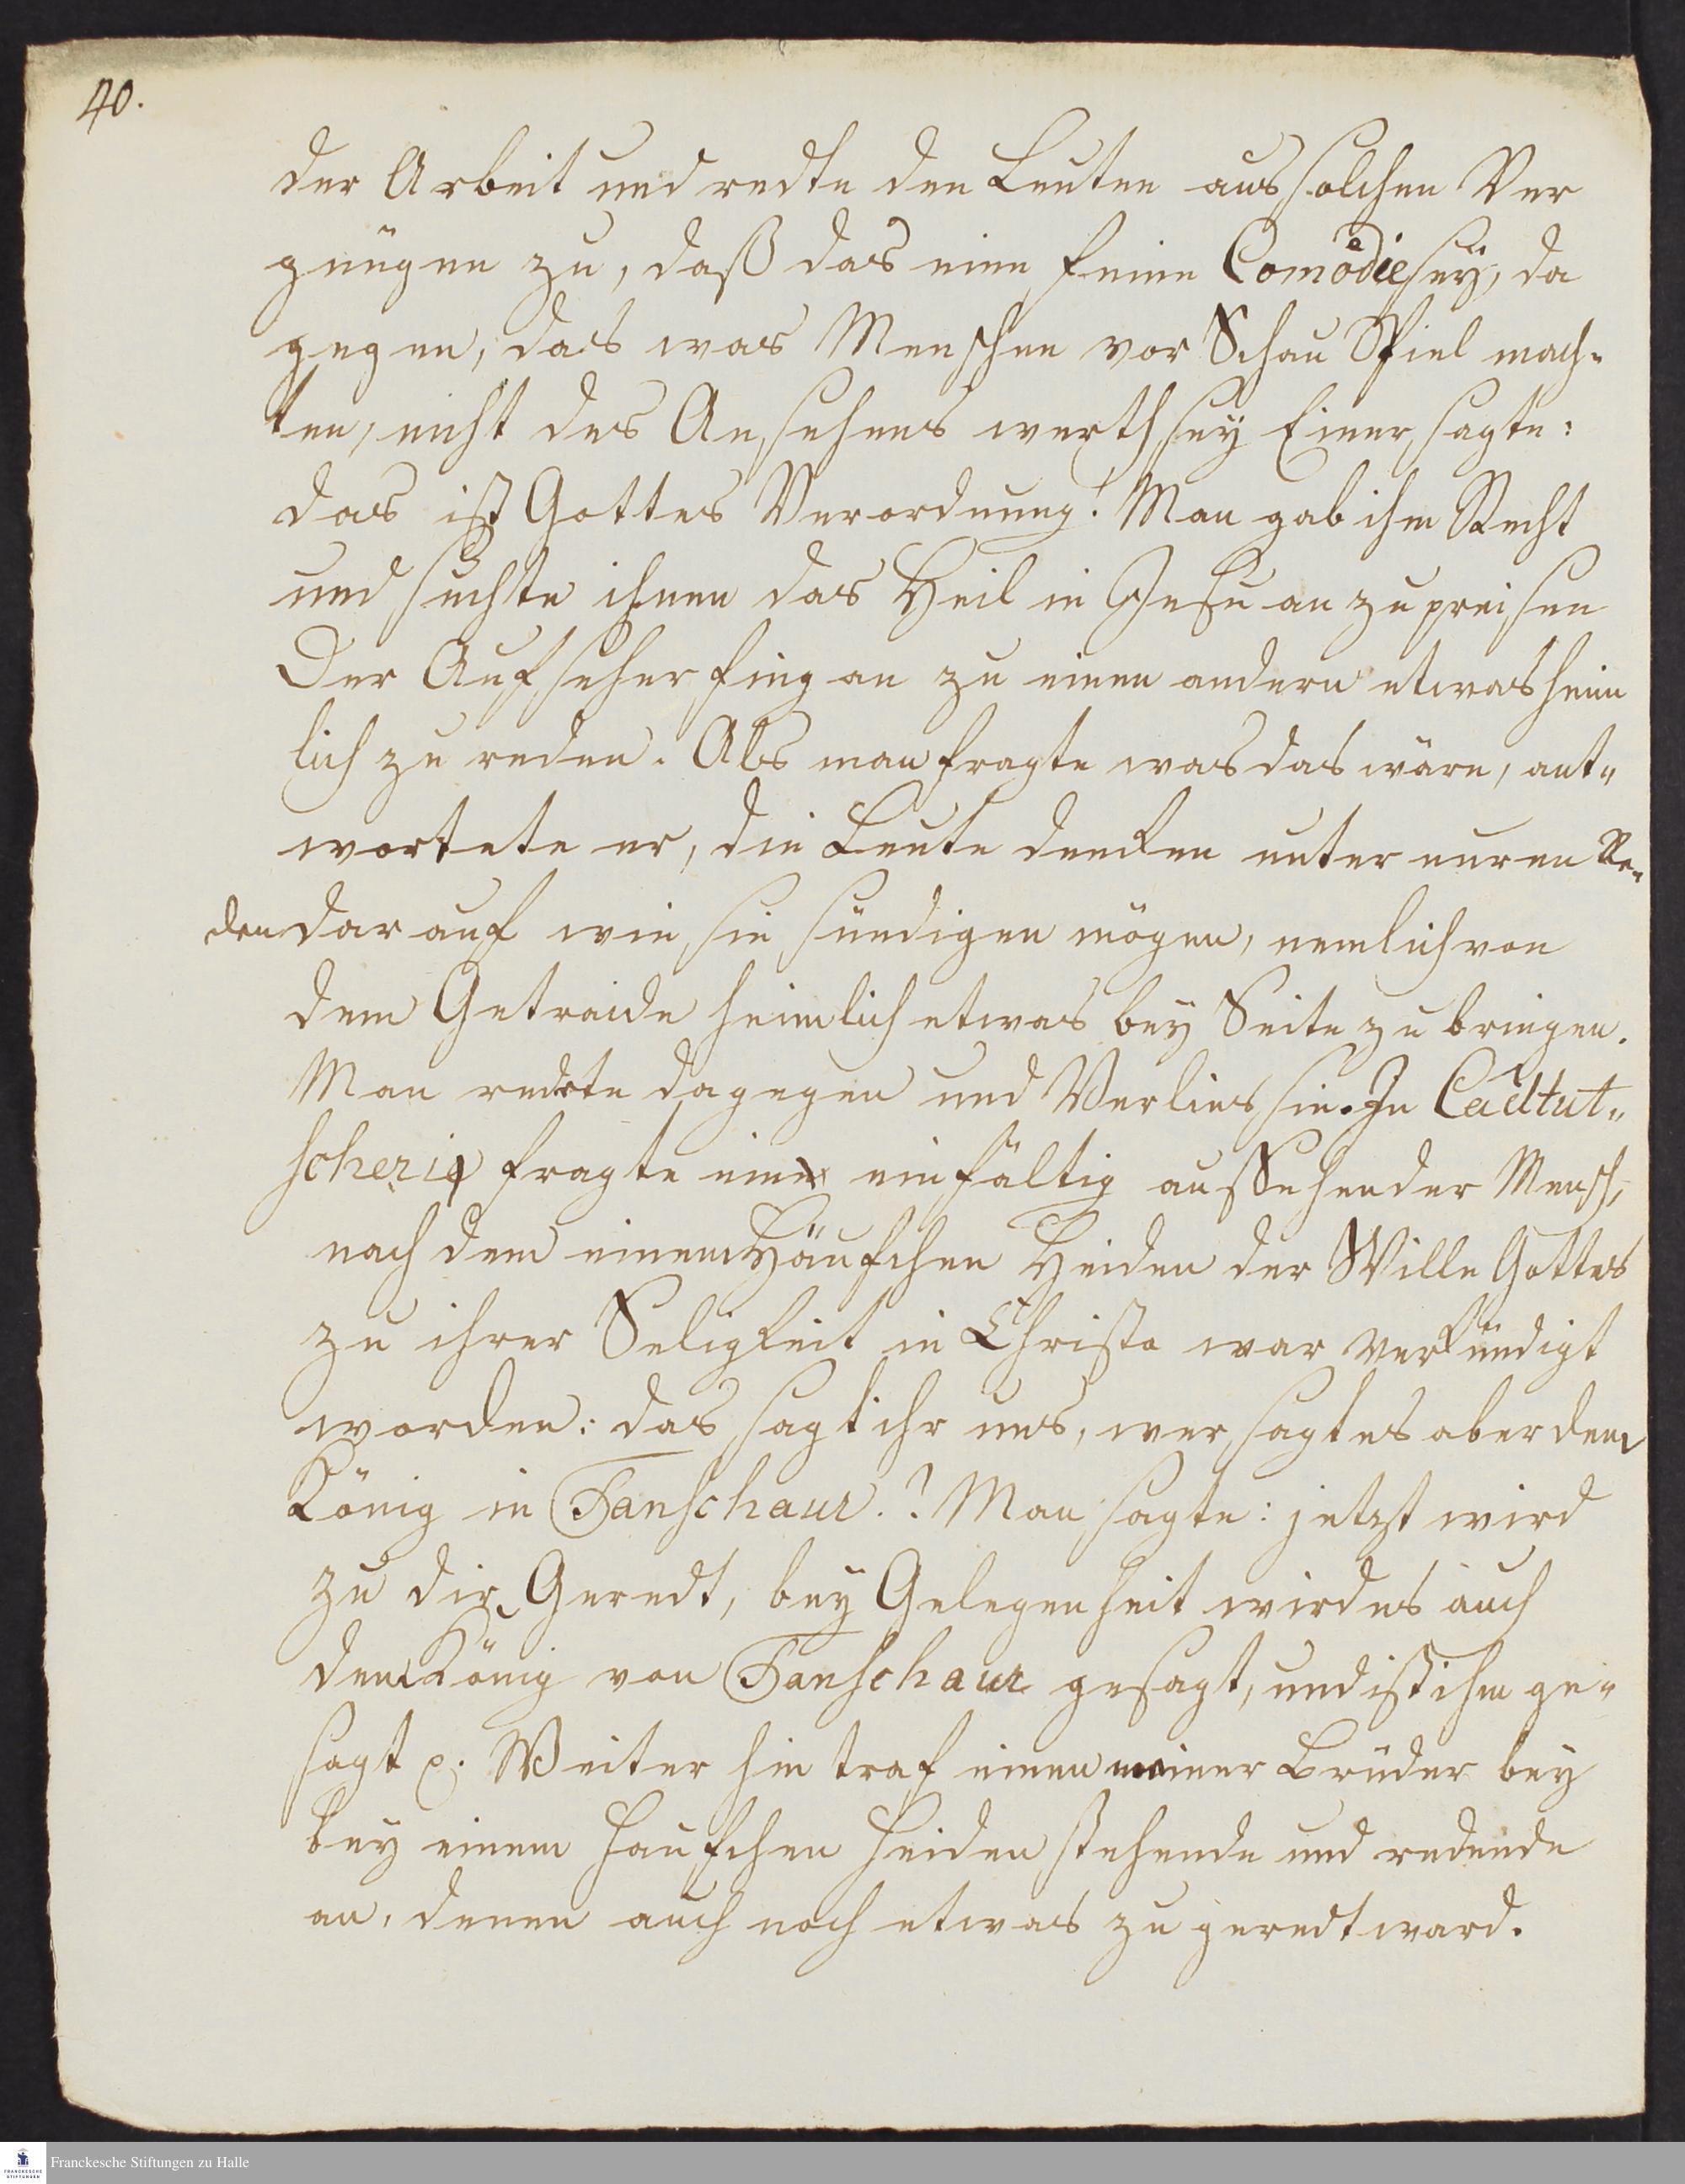 40.
der Arbeit und redte den Leuten aus solchen Ver
gnügen zu, daß das eine feine Comödie seÿ, da
gegen, das was Menschen vor Schau Spiel mach-
ten, nicht des Ansehens werth seÿ Einer sagte:
das ist Gottes Verordnung! Man gab ihm Recht
und suchte ihnen das Heil in Jesu an zu preisen
Der Aufseher fing an zu einen andern etwas heim
lich zu reden. Als man fragte was das wäre, ant-
wortete er, die Leute dencken unter euren Re-
den darauf wie sie sündigen mögen, nemlich von
dem Getraide heimlich etwas beÿ Seite zu bringen.
Man redete dagegen und Verlies sie. In Cadtut-
scheri fragte ein einfältig aussehender Mensch,
nach dem einem Häufchen Heiden der Wille Gottes
zu ihrer Seligkeit in Christo war verkündigt
worden: das sagt ihr uns, wer sagt es aber dem
König in Tanschaur.? Man sagte: jetzt wird
zu dir Geredt, beÿ Gelegenheit wird es auch
dem König von Tanschaur gesagt, und ist ihm ge-
sagt p. Weiter hin traf einen meiner Brüder beÿ
beÿ einem Haufchen Heiden stehende und redende
an, denen auch noch etwas zu geredt ward.
Franckesche Stiftungen zu Halle
FRANCKESCHE STIFTUNGEN